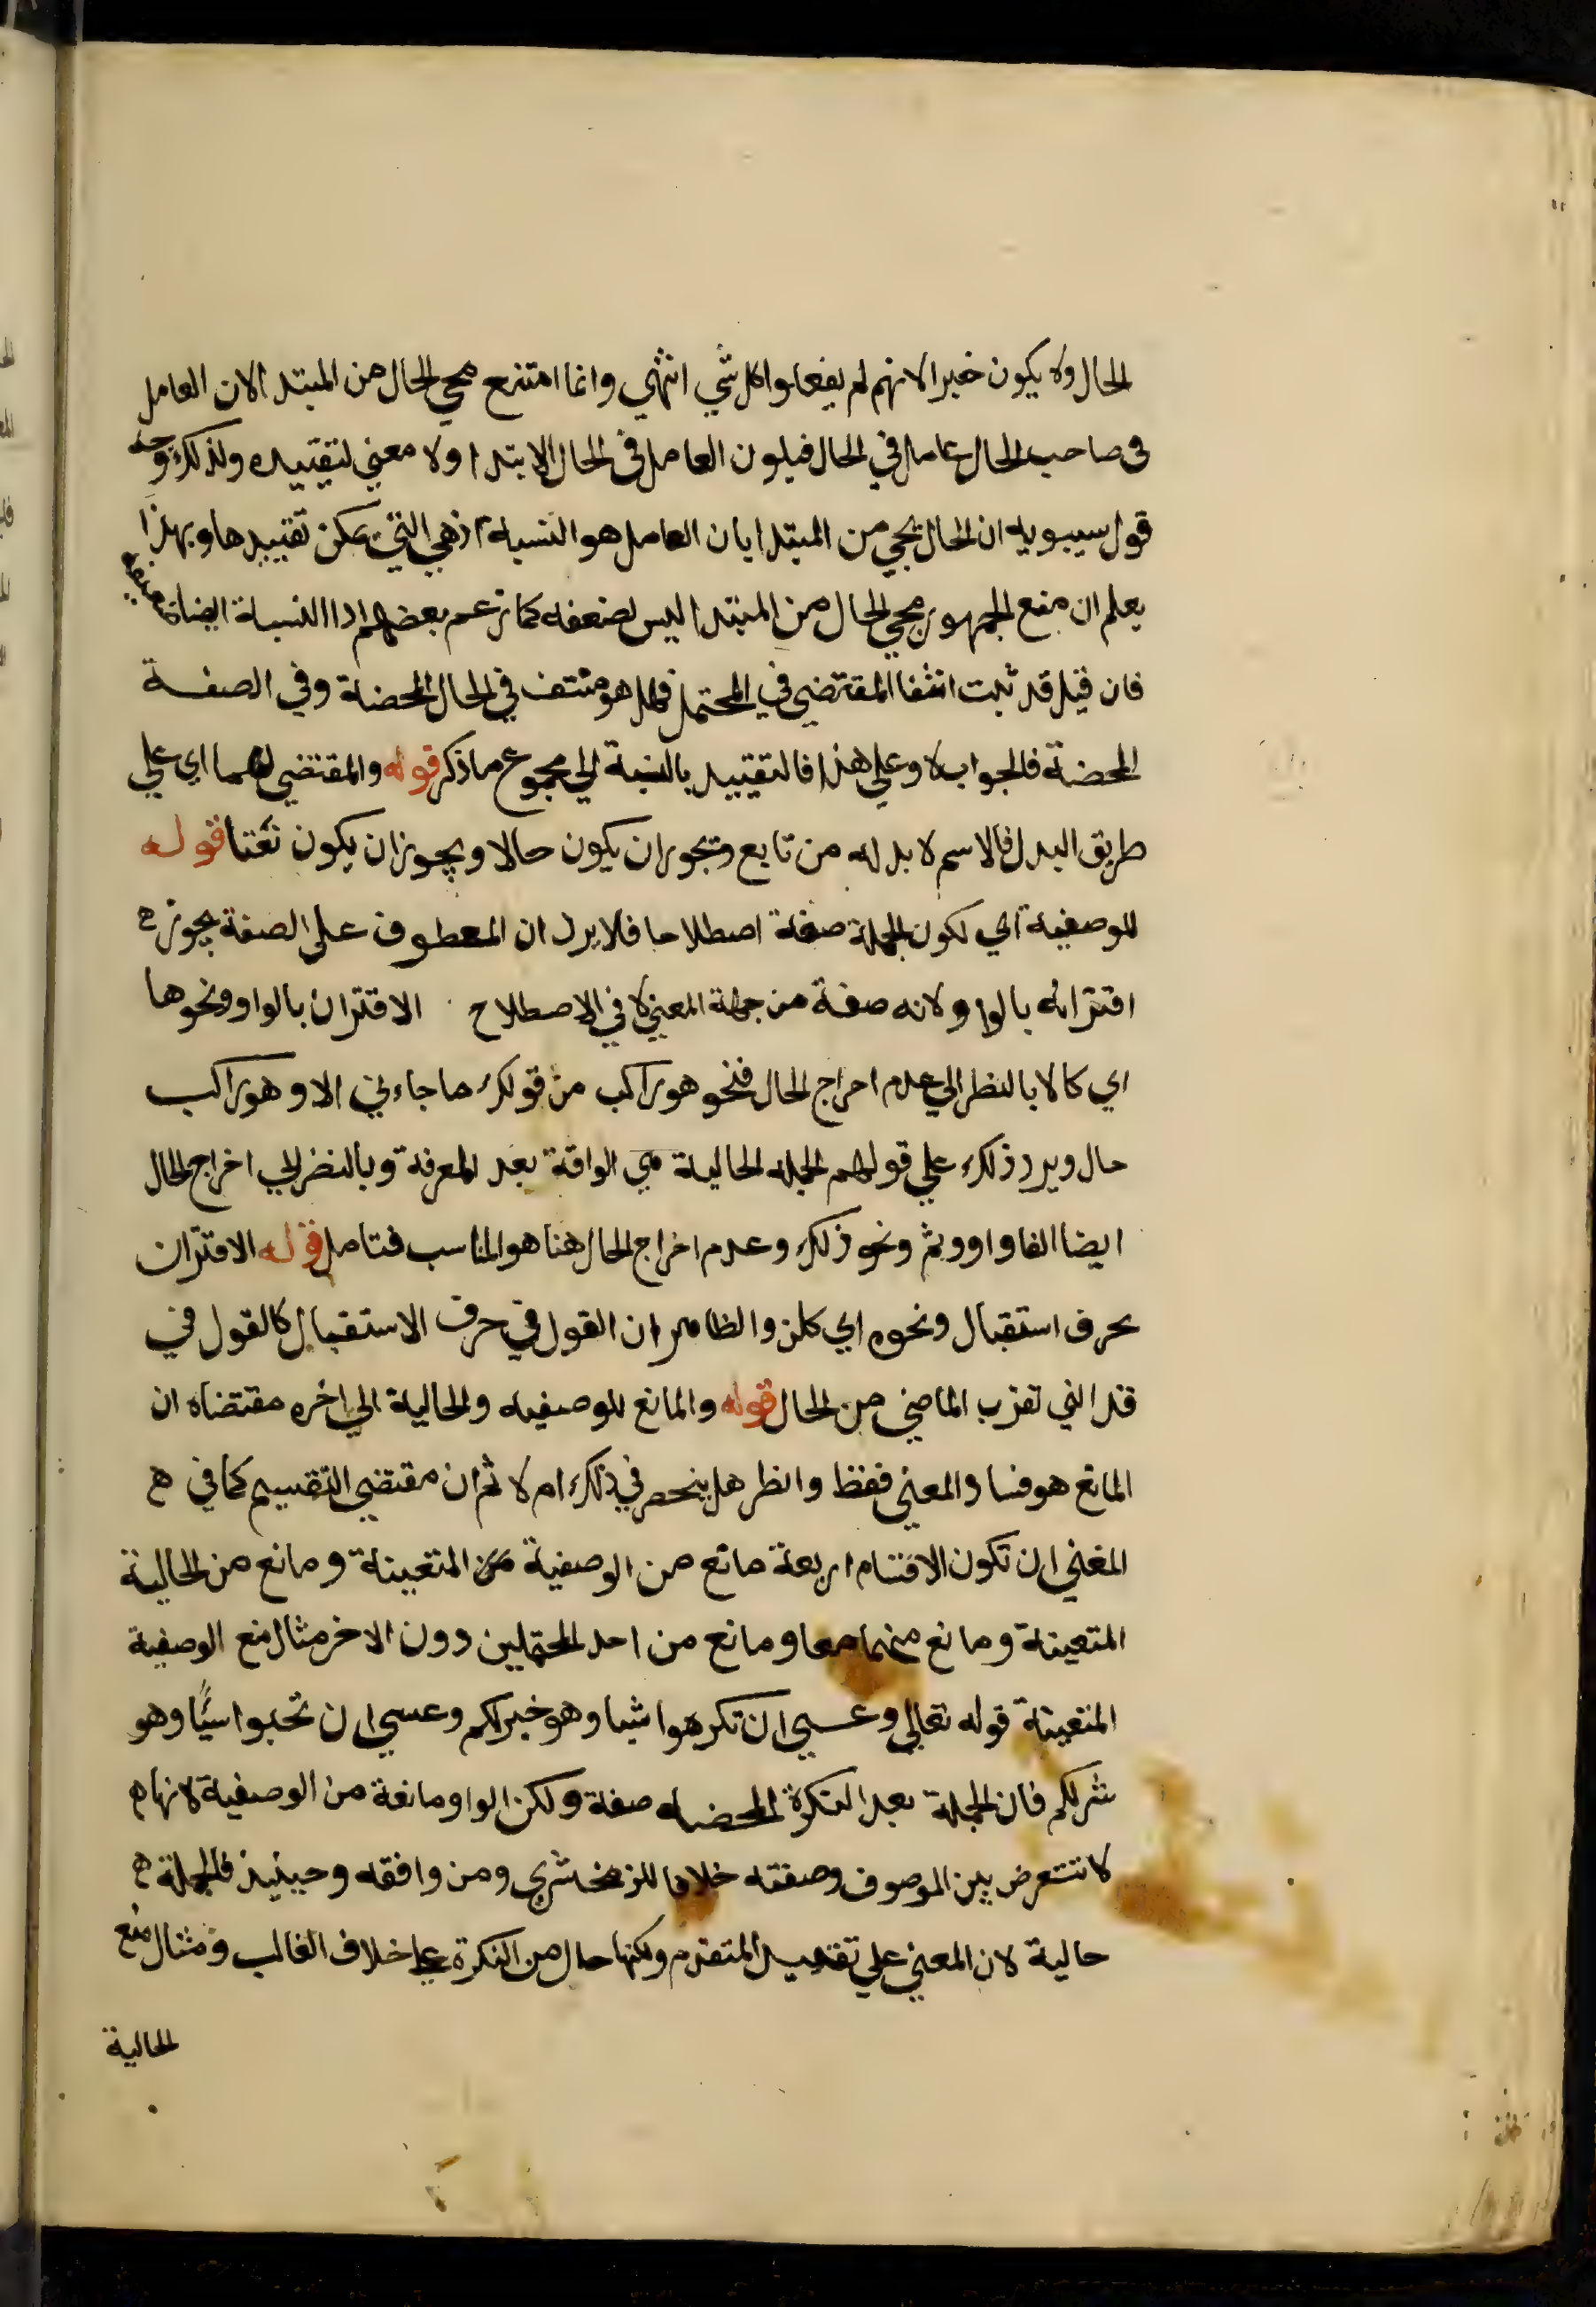 الحال ولا يكون خبرا لانهم لم يفعلوا كل شي انتهي وانما امتنع مجي الحال من المبتدا لان العامل
في صاحب الحال عامل في الحال فيلون العامل في الحال الابتدا ولا معني لتقييده ولذلك وجه
قول سيبويه ان الحال يجي من المبتدا بان العامل هو النسبة اذ هي التي يمكن تقييدها وبهذا
يعلم ان منع الجمهور مجي الحال من المبتدا ليس لضعفه كما زعم بعضهم اذا النسبة ايضا ضعيفة
فان قيل قد ثبت انتفا المقتضي في المحتمل فهل هو منتف في الحال المحضة وفي الصفة
المحضة فالجواب لا وعلي هذا فالتقييد بالنسبة الي مجموع ما ذكر قوله والمقتضي لهما اي علي
طريق البدل فالاسم لا بد له من تابع ويجوز ان يكون حالا ويجوز ان يكون نعتا قوله
للوصفية اي لكون الجملة صفة اصطلاحا فلا يرد ان المعطوف علي الصفة يجوز ه
اقترانه بالواو لانه صفة من جهة المعني لا في الاصطلاح الاقتران بالواو ونحوها
اي كالا بالنظر الي عدم احراج الحال فنحو هو راكب من قولك ما جاءني الا وهو راكب
حال ويرد ذلك علي قولهم الجملة الحالية هي الواقة بعد المعرفة وبالنضر الي اخراج الحال
ايضا الفا واو وثم ونحو ذلك وعدم اخراج الحال هنا هو المناسب فتامل قوله الاقتران
بحرف استقبال ونحوه اي كلن والظاهر ان القول في حرف الاستقبال كالقول في
قد التي تقرب الماضي من الحال قوله والمانع للوصفيه والحالية الي اخره مقتضاه ان
المانع هو فساد المعني فقظ وانظر هل ينحصر في ذلك ام لا ثم ان مقتضي التقسيم كما في ه
المغني ان تكون الاقسام اربعة مانع من الوصفية المتعينة ومانع من الحالية
المتعينة ومانع منهما معا ومانع من احد المحتملين دون الاخر مثال منع الوصفية
المتعينة قوله تعالي وعسي ان تكرهوا شيا وهو خير لكم وعسي ان تحبوا شيًا وهو
شر لكم فان الجملة بعد النكرة المحضه صفة ولكن الواو مانعة من الوصفية لانها ه
لا تتعرض بين الموصوف وصفته خلافا للزمخشري ومن وافقه وحينيذ فالجملة ه
حالية لان المعني علي تقييد المتقدم ولكنها حال من النكرة علي خلاف الغالب ومثال منع
الحالية